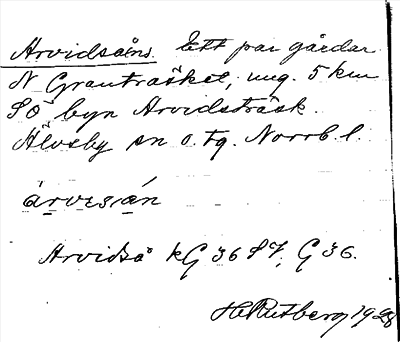 Arvidsåns. Ett par gårdar
N Granträsket, ung. 5 km
SÖ byn Arvidsträsk.
Älvsby sn o. tg. Norrb. l.
årvesián
Arvidså kG 36 S7, G 36.
H. Rutberg 1928